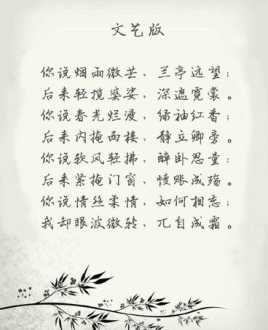 文艺版
你说烟雨微芒、兰亭远望；
后来轻揽婆娑、深遮霓裳。
你说春光烂漫、绿袖红香；
后来内掩西楼、静立卿旁。
你说软风轻拂、醉卧思量；
后来紧掩门窗、幔帐成殇。
你说情丝柔肠、如何相忘；
我却眼波微转、兀自成霜。